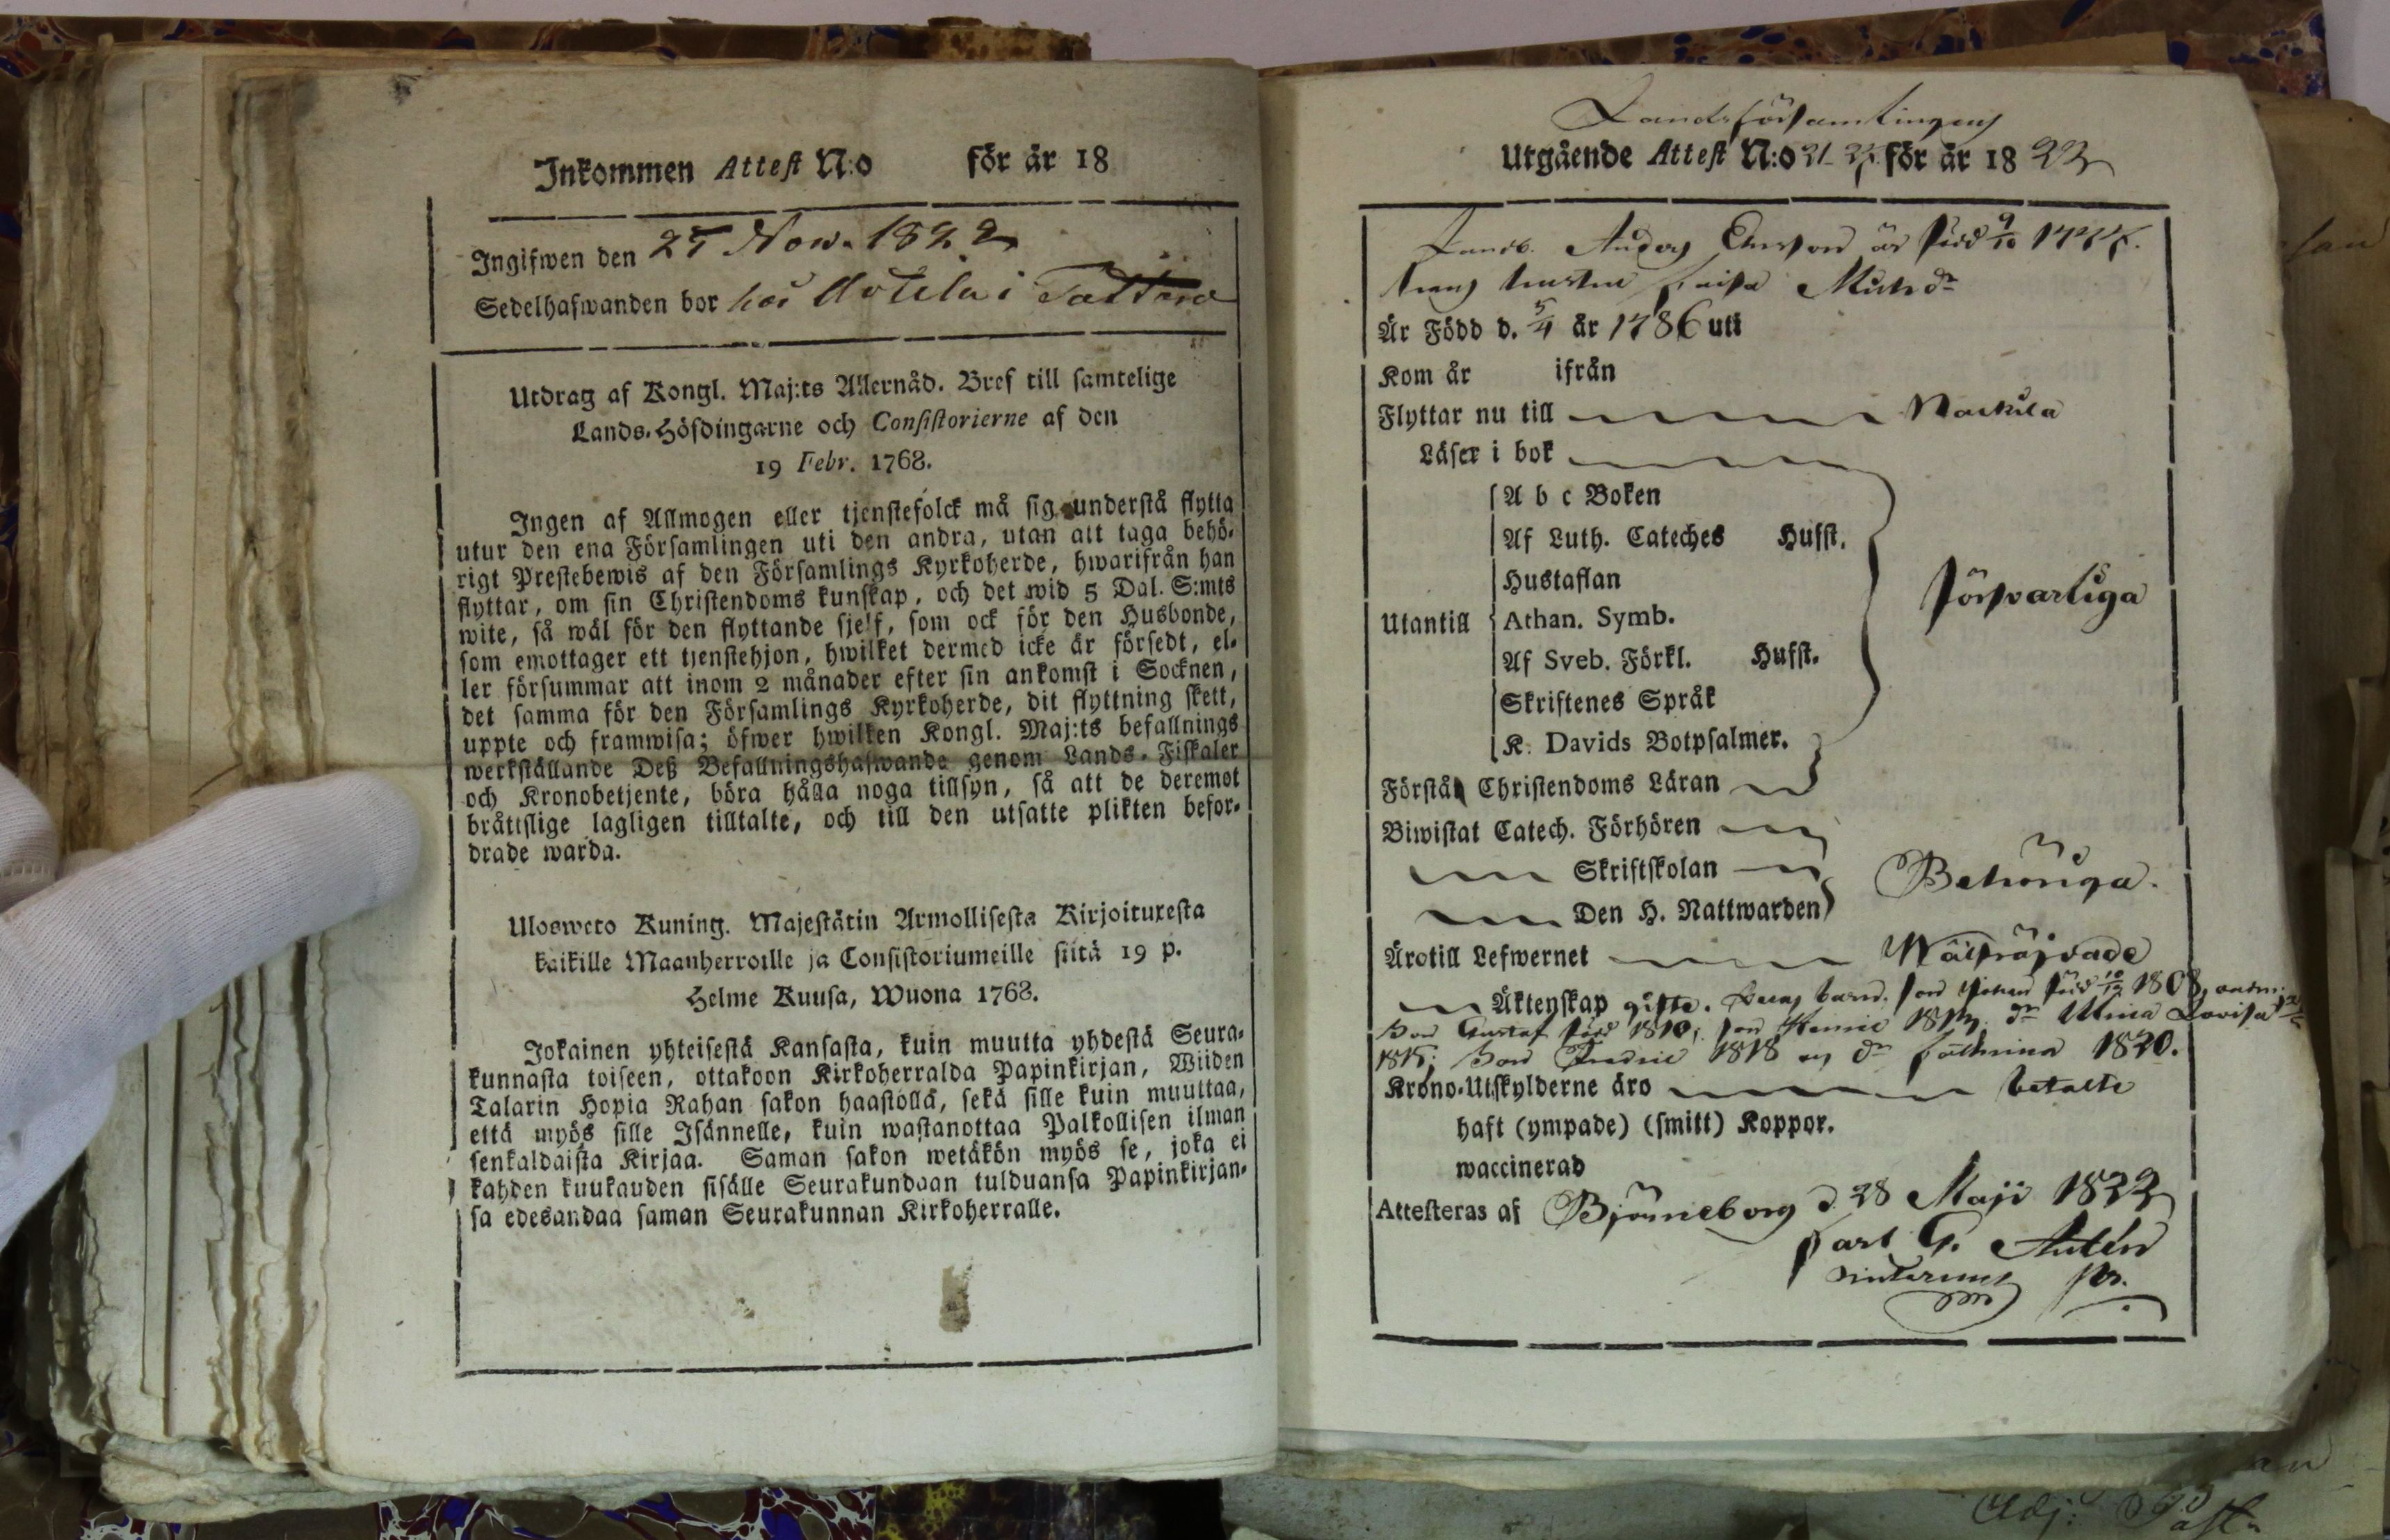 Inkommen Attest N:o för år 18
Ingifwen den 25 Nov. 1822
Sedelhafwanden bor hos i
Utdrag af Kongl. Maj:ts Allernåd. Bref till samtelige
Lands-Höfdingarne och Consistorierne af den
19 Febr. 1768.
Ingen af Allmogen eller tjenstefolck må sig understå flytta
utur den ena Församlingen uti den andra, utan att taga behö-
rigt Prestebewis af den Församlings Kyrkoherde, hwarifrån han
flyttar, om sin Christendoms kunskap, och det wid 5 Dal. S:mts
wite, så wäl för den flyttande sjelf, som ock för den Husbonde,
som emottager ett tjenstehjon, hwilket dermed icke är försedt, el-
ler försummar att inom 2 månader efter sin ankomst i Socknen,
det samma för den Församlings Kyrkoherde, dit flyttning skett,
uppte och framwisa; öfwer hwilken Kongl. Maj:ts befallnings
werkställande Deß Befallningshafwande genom Lands-Fiskaler
och Kronobetjente, böra hålla noga tillsyn, så att de deremot
bråttslige lagligen tilltalte, och till den utsatte plikten befor-
drade warda.
Ulosweto Kuning. Majestätin Armollisesta Kirjoituxesta
kaikille Maanherroille ja Consistoriumeille siitä 19 p.
Helme Kuusa, Wuona 1768.
Jokainen yhteisestä Kansasta, kuin muutta yhdestä Seura-
kunnasta toiseen, ottakoon Kirkoherralda Papinkirjan, Wiiden
Talarin Hopia Rahan sakon haastolla, sekä sille kuin muuttaa,
että myös sille Isännelle, kuin wastanottaa Palkollisen ilman
senkaldaista Kirjaa. Saman sakon wetäkön myös se, joka ei
kahden kuukauden sisälle Seurakundaan tulduansa Papinkirjan-
sa edesandaa saman Seurakunnan Kirkoherralle.
Landsförsamlingens
Utgående Attest N:o för år 1822
Anders är född 9/10
hustru Caisa
Är Född d. 5/4 år 1786 uti
Kom år ifrån
Flyttar nu till
Läser i bok
A b c Boken
Af Luth. Cateches Husst.
Hustaflan
Utantill Athan. Symb. försvarliga
Af Sveb. Förkl. Husst.
Skriftenes Språk
K. Davids Botpsalmer.
Förstår Christendoms Läran
Biwistat Catech. Förhören
Skriftskolan Behöriga.
Den H. Nattwarden
Ärotill Lefwernet Wälfräjdade
Äktenskap gifte. barn. son Johan född 1808,
Son Gustaf född 1810; son 1813, dr Ulrica Lovisa
1815; Son Fredric 1818 dr Cathrina 1820.
Krono-Utskylderne äro betalte
haft (ympade) (smitt) Koppor.
waccinerad
Attesteras af Björneborg d. 28 Maji 1822
Carl G.
Adj: Past.